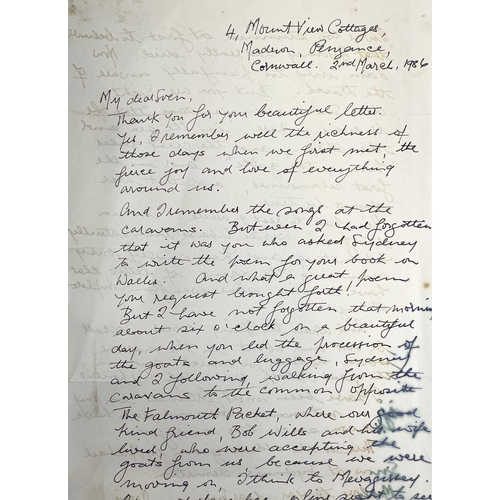 4, Mount View Cottages,
Madron, Penzance,
Cornwall. 2nd March, 1986
My dear Sven,
Thank you for your beautiful letter.
Yes, I remember well the richness of
those days when we first met, the
fierce joy and love of everything
around us.
And I remember the songs at the
caravans. But even I had forgotten
that it was you who asked Sydney
to write the poem for your book on
Wallis. And what a great poem
your request brought forth!
But I have not forgotten that morning
about six o'clock on a beautiful
day, when you led the procession of
the goats and luggage, Sydney
and I following, walking from the
caravans to the common opposite
The Falmouth Packet, where our good
kind friend, Bob Wills and his wife
lived who were accepting the
goats from us because we were
moving on, I think to Mevagissey.